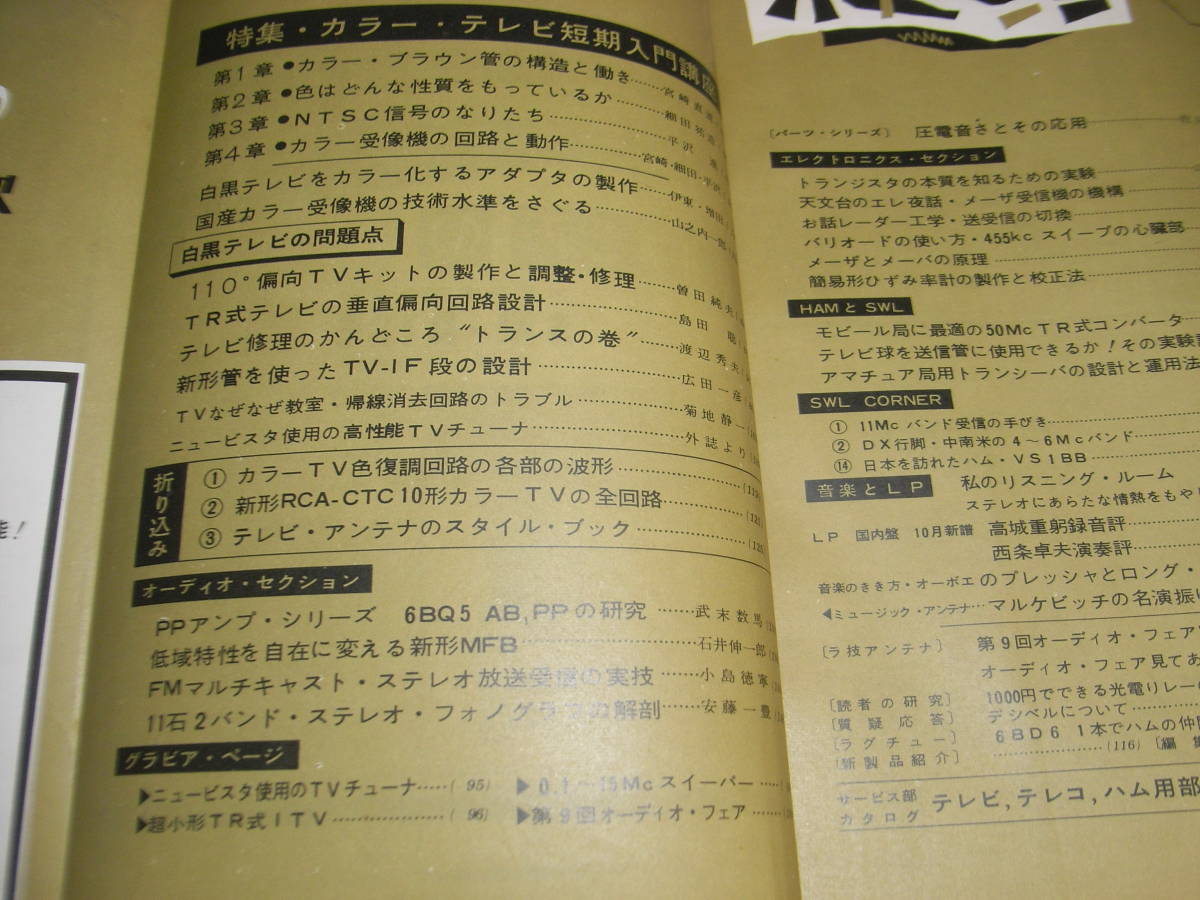 特集・カラー・テレビ短期入門講座
第1章●カラー・ブラウン管の構造と働き………宮崎
第2章●色はどんな性質をもっているか………細田
第3章●NTSC信号のなりたち………平沢
第4章●カラー受像機の回路と動作………宮崎・細田・平沢
白黒テレビをカラー化するアダプタの製作……伊東・増田
国産カラー受像機の技術水準をさぐる………山之内一郎
白黒テレビの問題点
110°偏向TVキットの製作と調整・修理………曽田純夫
TR式テレビの垂直偏向回路設計………島田 聡
テレビ修理のかんどころ “トランスの巻”………渡辺秀夫
新形管を使ったTV-IF段の設計………広田一彦
TVなぜなぜ教室・帰線消去回路のトラブル………菊地静一
ニュービスタ使用の高性能TVチューナ………外誌より
折り込み
① カラーTV色復調回路の各部の波形………
② 新形RCA-CTC10形カラーTVの全回路………
③ テレビ・アンテナのスタイル・ブック………
オーディオ・セクション
PPアンプ・シリーズ 6BQ5 AB,PPの研究………武末数馬
低域特性を自在に変える新形MFB………石井伸一郎
FMマルチキャスト・ステレオ放送受信の実技………小島徳寧
11石2バンド・ステレオ・フォノグラフの解剖………安藤一豊
グラビア・ページ
▶ニュービスタ使用のTVチューナ……( 95)
▶超小形TR式ITV………………( 96)
▶0.1〜15Mcスイーパー……
▶第9回オーディオ・フェア……
〔パーツ・シリーズ〕 圧電音さとその応用………
エレクトロニクス・セクション
トランジスタの本質を知るための実験………
天文台のエレ夜話・メーザ受信機の機構
お話レーダー工学・送受信の切換………
バリオードの使い方・455kc スイープの心臓部……
メーザとメーバの原理………
簡易形ひずみ率計の製作と校正法………
HAMとSWL
モビール局に最適の50McTR式コンバータ……
テレビ球を送信管に使用できるか！その実験
アマチュア局用トランシーバの設計と運用法
SWL CORNER
① 11Mcバンド受信の手びき………
② DX行脚・中南米の4〜6Mcバンド………
⑭ 日本を訪れたハム・VS1BB………
音楽とLP
私のリスニング・ルーム
ステレオにあらたな情熱をもや
LP 国内盤 10月新譜 高城重躬録音評………
西条卓夫演奏評………
音楽のきき方・オーボエのプレッシャとロング・
◀ミュージック・アンテナ…マルケビッチの名演振
〔ラ技アンテナ〕 第9回オーディオ・フェア
オーディオ・フェア見てあ
〔読者の研究〕 1000円でできる光電リレー
〔質疑応答〕 デシベルについて………
〔ラグチュー〕 6BD6 1本でハムの仲間
〔新製品紹介〕 ………(116) 〔編集
サービス部カタログ テレビ,テレコ,ハム用部